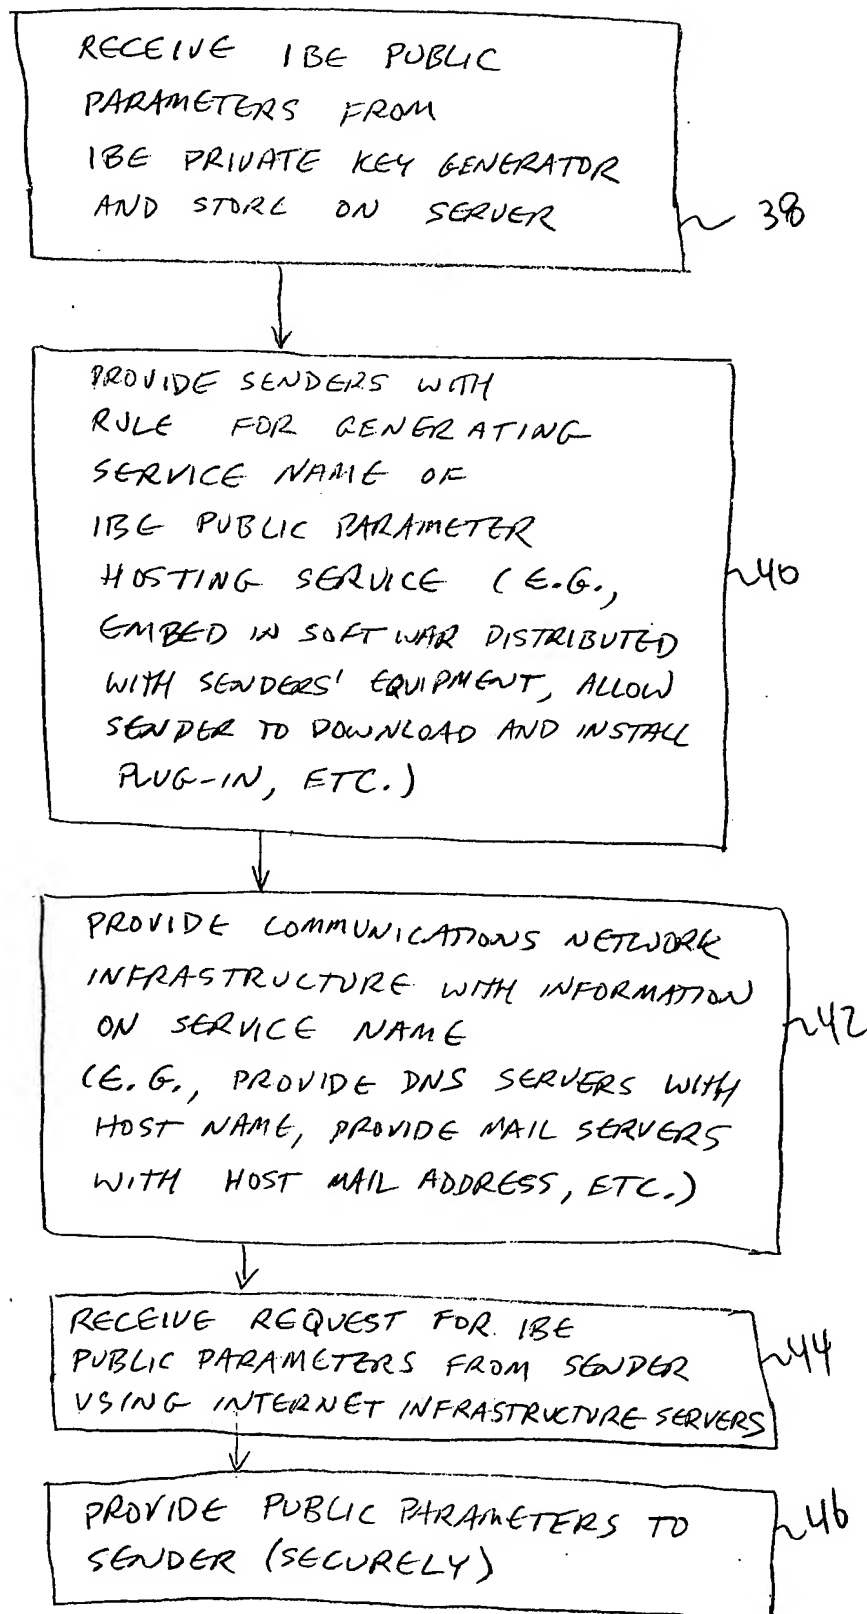 RECEIVE IBE PUBLIC
PARAMETERS FROM
IBE PRIVATE KEY GENERATOR
AND STORE ON SERVER
38
PROVIDE SENDERS WITH
RULE FOR GENERATING
SERVICE NAME OF
IBE PUBLIC PARAMETER
HOSTING SERVICE (E.G.,
EMBED IN SOFTWAR DISTRIBUTED
WITH SENDERS' EQUIPMENT, ALLOW
SENDER TO DOWNLOAD AND INSTALL
PLUG-IN, ETC.)
40
PROVIDE COMMUNICATIONS NETWORK
INFRASTRUCTURE WITH INFORMATION
ON SERVICE NAME
(E.G., PROVIDE DNS SERVERS WITH
HOST NAME, PROVIDE MAIL SERVERS
WITH HOST MAIL ADDRESS, ETC.)
42
RECEIVE REQUEST FOR IBE
PUBLIC PARAMETERS FROM SENDER
USING INTERNET INFRASTRUCTURE SERVERS
44
PROVIDE PUBLIC PARAMETERS TO
SENDER (SECURELY)
46